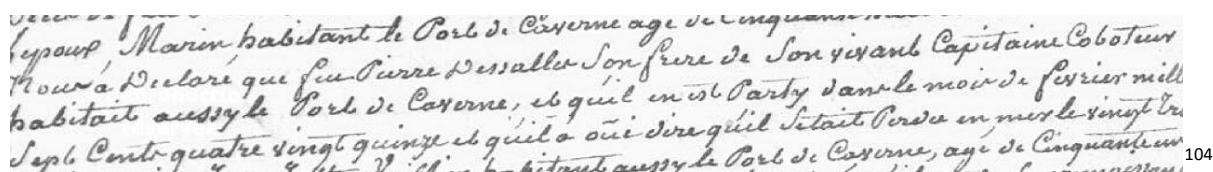 l'epoux, Marin habitant le Port de Caverne age de Cinquante
Nous a Declaré que feu Pierre Dessalles Son frere de Son vivant Capitaine Coboteur
habitait aussy le Port de Caverne, et quil en est Party dans le mois de fevrier mill
Sept Cents quatre vingt quinze et quil a ouï dire quil Setait Perdu en mer le vingt
habitant aussy le Port de Caverne, age de Cinquante
104